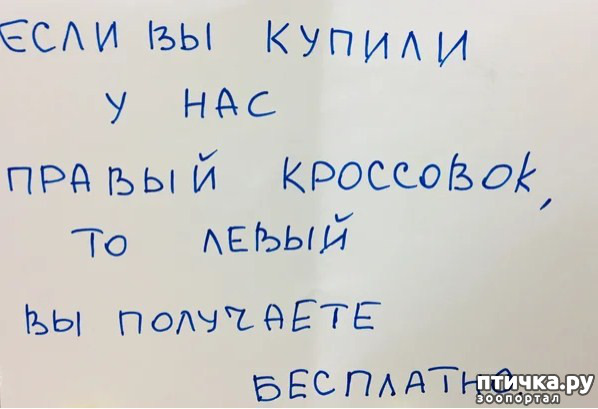 ЕСЛИ ВЫ КУПИЛИ
У НАС
ПРАВЫЙ КРОССОВОК,
ТО ЛЕВЫЙ
ВЫ ПОЛУЧАЕТЕ
БЕСПЛАТНО
птичка.ру
зоопортал